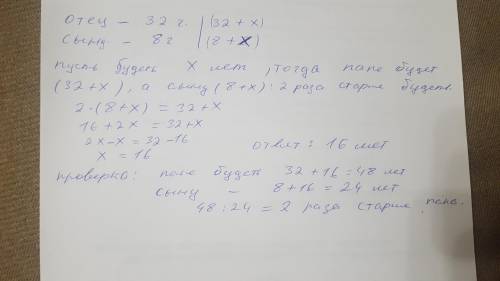 отец – 32 г. | (32 + x)
сыну – 8 г | (8 + x)
пусть будет x лет, тогда папе будет
(32+x), а сыну (8+x) : 2 раза старше будет.
2·(8+x) = 32+x
16+2x = 32+x
2x-x = 32-16
x = 16
ответ: 16 лет
проверка: папе будет 32+16=48 лет
сыну – 8+16 = 24 лет
48:24 = 2 раза старше папа.